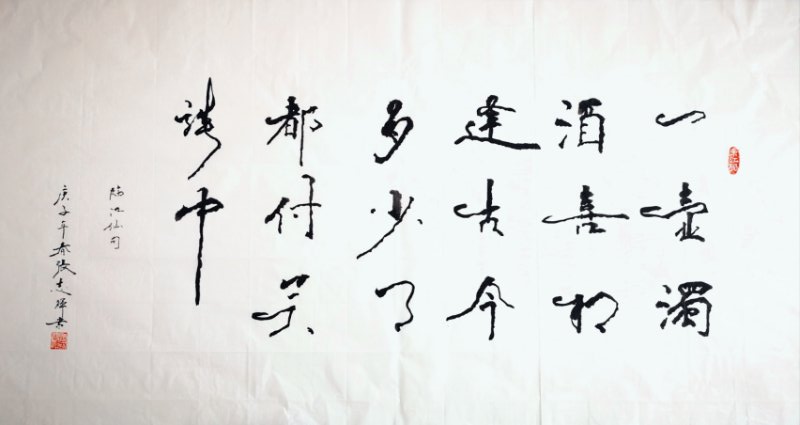 一壺濁
酒喜相
逢古今
多少事
都付笑
談中
临江仙句
庚子年春张志輝書